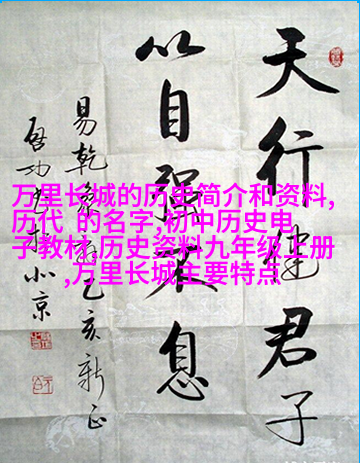 天行健君子
以自強不息
易乾象乙亥新正
啟功北京
万里长城的历史简介和资料,
历代 的名字,初中历史电
子教材,历史资料九年级上册
,万里长城主要特点